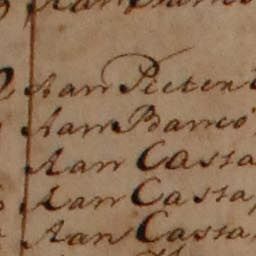 Aan Pieter
Aan Banco
Aan Cassa
Aan Cassa
Aan Cassa